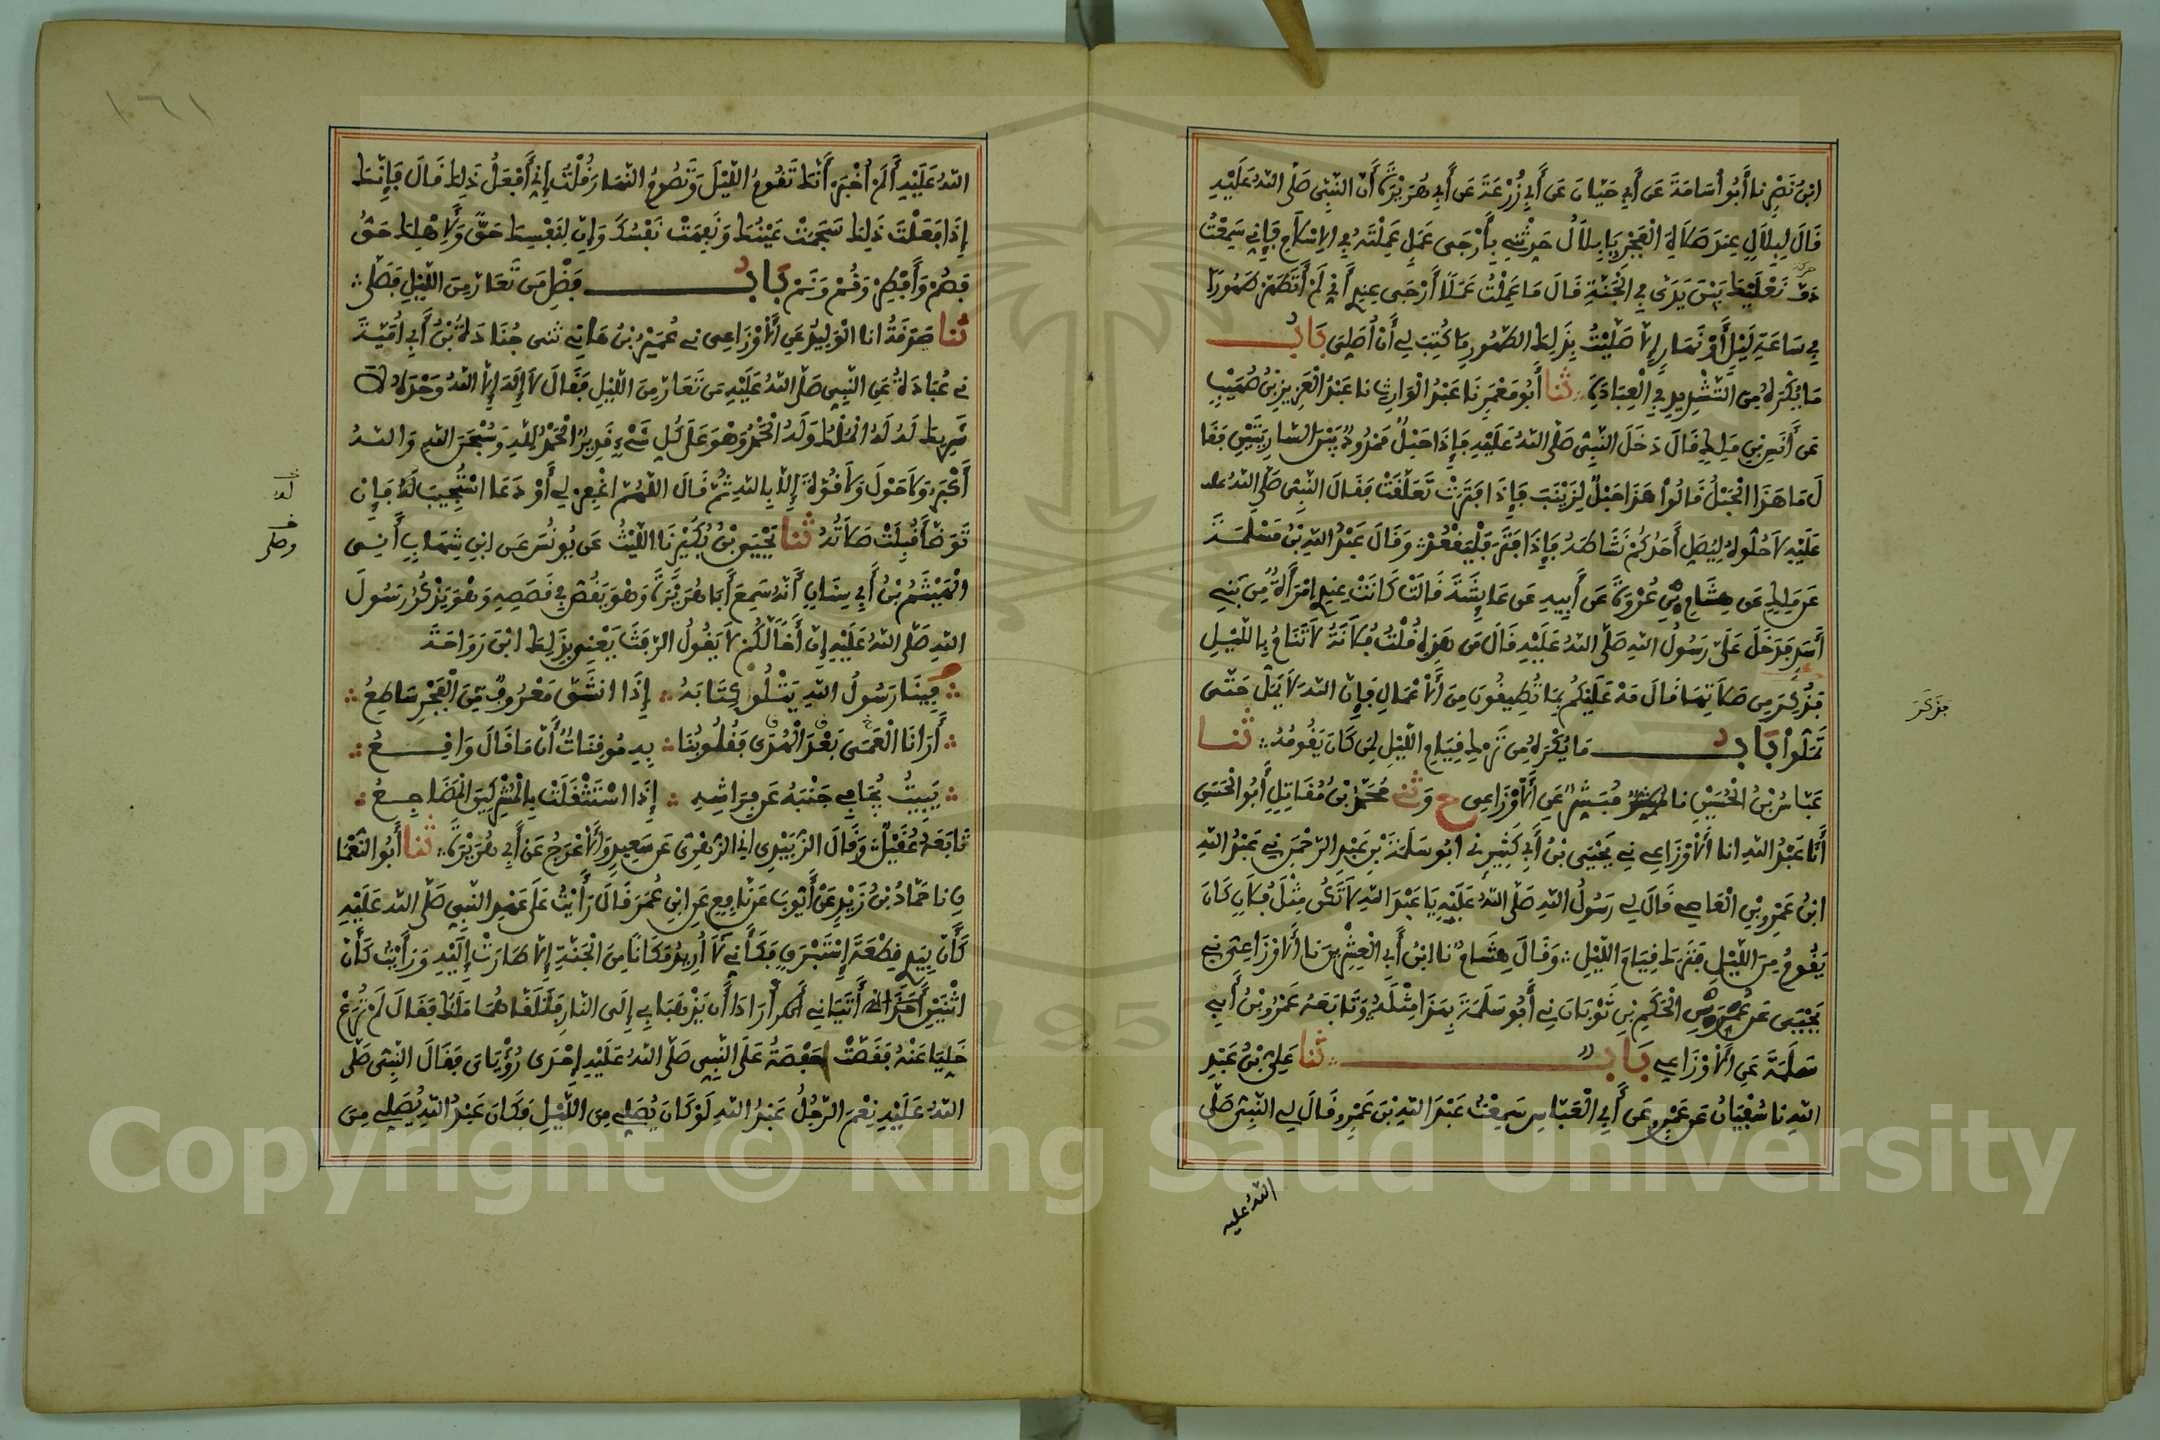 ابْنُ نَصْرٍ نا أَبُو أُسَامَةَ عَن أَبِي حَيَّانَ عَن أَبِي زُرْعَةَ عَن أَبِي هُرَيْرَةَ أَنَّ النَّبِيَّ صَلَّى اللهُ عَلَيْهِ
قَالَ لِبِلَالٍ عِندَ صَلَاةِ الْفَجْرِ يَا بِلَالُ حَدِّثْنِي بِأَرْجَى عَمَلٍ عَمِلْتَهُ فِي الاِسْلَامِ فَإِنِّي سَمِعْتُ
دَفَّ نَعْلَيْكَ بَيْنَ يَدَيَّ فِي الْجَنَّةِ قَالَ مَا عَمِلْتُ عَمَلًا أَرْجَى عِندِي أَنِّي لَمْ أَتَطَهَّرْ طُهُورًا
فِي سَاعَةِ لَيْلٍ أَوْ نَهَارٍ إِلَّا صَلَّيْتُ بِذَلِكَ الطُّهُورِ مَا كُتِبَ لِي أَنْ أُصَلِّيَ بَابُ
مَا يُكْرَهُ مِنَ التَّشْدِيدِ فِي الْعِبَادَةِ ثنا أَبُو مَعْمَرٍ نَا عَبْدُ الْوَارِثِ نا عَبْدُ الْعَزِيزِ بْنُ صُهَيْبٍ
عَن أَنَسِ بْنِ مَلِكٍ قَالَ دَخَلَ النَّبِيُّ صَلَّى اللهُ عَلَيْهِ فَإِذَا حَبْلٌ مَمْدُودٌ بَيْنَ السَّارِيَتَيْنِ فَقَا
لَ مَا هَذَا الْحَبْلُ قَالُوا هَذَا حَبْلٌ لِزَيْنَبَ فَإِذَا فَتَرَتْ تَعَلَّقَتْ فَقَالَ النَّبِيُّ صَلَّى اللهُ عليه
عَلَيْهِ لَا حُلُّوهُ لِيُصَلِّ أَحَدُكُمْ نَشَاطَهُ فَإِذَا فَتَرَ فَلْيَقْعُدْ وَقَالَ عَبْدُ اللهِ بْنُ مَسْلَمَةَ
عَن مَلِكٍ عَن هِشَامِ بْنِ عُرْوَةَ عَن أَبِيهِ عَن عَايِشَةَ قَالَتْ كَانَتْ عِندِي امْرَأَةٌ مِن بَنِي
أَسَدٍ فَدَخَلَ عَلَيَّ رَسُولُ اللهِ صَلَّى اللهُ عَلَيْهِ فَالَ مَن هَذِهِ قُلْتُ فُلَانَةُ لَا تَنَامُ بِاللَّيْلِ
فَذُكِرَ مِن صَلَاتِهَا فَالَ مَهْ عَلَيْكُم مَا تُطِيقُونَ مِنَ الْأَعْمَالِ فَإِنَّ اللهَ لَا يَمَلُّ حَتَّى
فَذَكَرَ
تَمَلُّوا بَابُ مَا يُكْرَهُ مِن تَرْكِ قِيَامِ اللَّيْلِ لِمَن كَانَ يَقُومُهُ ثنا
عَبَّاسُ بْنُ الْحُسَيْنِ نا مُبَشِّرٌ عَنِ الْأَوْزَاعِي ح وَثني مُحَمَّدُ بْنُ مُقَاتِلٍ أَبُو الْحَسَنِ
أَنَا عَبْدُ اللهِ انا الْأَوْزَاعِي ني يَحْيَى بْنُ أَبِي كَثِيرٍ ني أبُو سَلَمَةَ بْنِ عَبْدِ الرَّحْمَنِ ني عَبْدُ اللهِ
ابْنُ عَمْرِو بْنِ الْعَاصِي قَالَ لِي رَسُولُ اللهِ صَلَّى اللهُ عَلَيْهِ يَا عَبْدَ اللهِ لَا تَكُن مِثْلَ فُلَانٍ كَانَ
يَقُومُ مِنَ اللَّيْلِ فَتَرَكَ قِيَامَ اللَّيْلِ وَقَالَ هِشَامٌ نا ابْنُ أَبِي الْعِشْرِينَ نا الْأَوْزَاعِيُّ ني
يَحْيَى عَن عُمَرَ بْنِ الْحَكَمِ بْنِ ثَوْبَانَ ني أَبُو سَلَمَةَ بِهَذَا مِثْلَهُ وَتَابَعَهُ عَمْرُو بْنُ أَبِي
سَلَمَةَ عَنِ الْأَوْزَاعِي بَابُ ثنا عَلِيُّ بْنُ عَبْدِ
اللهِ نا سُفْيَانُ عَن عَمْرٍو عَن أَبِي الْعَبَّاسِ سَمِعْتُ عَبْدَ اللهِ بْنَ عَمْرٍو قَالَ لِي النَّبِيُّ صَلَّى
اللهُ عليه
١٦١
اللهُ عَلَيْهِ أَلَمْ أُخْبَرْ أَنَّكَ تَقُومُ اللَّيْلَ وَتَصُومُ النَّهَارَ قُلْتُ إِنِّي أَفْعَلُ ذَلِكَ قَالَ فَإِنَّكَ
إِذَا فَعَلْتَ ذَلِكَ هَجَمَتْ عَيْنُكَ وَنَفِهَتْ نَفْسُكَ وَإِنَّ لِنَفْسِكَ حَقٌّ وَلِأَهْلِكَ حَقٌّ
فَصُمْ وَأَفْطِرْ وَقُمْ وَنَمْ بَابُ فَضْلِ مَن تَعَارَّ مِنَ اللَّيْلِ فَصَلَّى
ثنا صَدَقَةُ انا الْوَلِيدُ عَنِ الْأَوْزَاعِي ني عُمَيْرُ بْنُ هَانِي ثني جُنَادَةُ بْنُ أَبِي أُمَيَّةَ
ني عُبَادَةُ عَنِ النَّبِيِّ صَلَّى اللهُ عَلَيْهِ مَن تَعَارَّ مِنَ اللَّيْلِ فَقَالَ لَا إِلَهَ إِلَّا اللهُ وَحْدَهُ لَا
شَرِيكَ لَهُ لَهُ الْمُلْكُ وَلَهُ الْحَمْدُ وَهْوَ عَلَى كُلِّ شَيْءٍ قَدِيرٌ الْحَمْدُ لِلهِ وَسُبْحَنَ اللهِ وَاللهُ
أَكْبَرُ وَلَا حَوْلَ وَلَا قُوَّةَ إِلَّا بِاللهِ ثُمَّ قَالَ اللَّهُمَّ اغْفِرْ لِي أَوْ دَعَا اسْتُجِيبَ لَهُ فَإِن
له
وصلى
تَوَضَّأَ قُبِلَتْ صَلَاتُهُ ثنا يَحْيَى بْنُ بُكَيْرٍ نَا اللَّيْثُ عَن يُونُسَ عَنِ ابْنِ شِهَابٍ أَخْبَرَنِي
الْهَيْثَمُ بْنُ أَبِي سِنَانٍ أَنَّهُ سَمِعَ أَبَا هُرَيْرَةَ وَهْوَ يَقُصُّ فِي قَصَصِهِ وَهْوَ يَذْكُرُ رَسُولَ
اللهِ صَلَّى اللهُ عَلَيْهِ إِنَّ أَخًا لَكُمْ لَا يَقُولُ الرَّفَثَ يَعْنِي بِذَلِكَ ابْنَ رَوَاحَةَ
فِينَا رَسُولُ اللهِ يَتْلُو كِتَابَهُ إِذَا انشَقَّ مَعْرُوفٌ مِّنَ الْفَجْرِ سَاطِعُ
أَرَانَا الْعَمَى بَعْدَ الْهُدَى فَقُلُوبُنَا بِهِ مُوقِنَاتٌ أَنَّ مَا قَالَ وَاقِعُ
يَبِيتُ يُجَافِي جَنْبَهُ عَن فِرَاشِهِ إِذَا اسْتَثْقَلَتْ بِالْمُشْرِكِينَ الْمَضَاجِعُ
تَابَعَهُ عُقَيْلٌ وَقَالَ الزُّبَيْدِي اني الزُّهْرِي عَن سَعِيدٍ وَالْأَعْرَجُ عَنْ أَبِي هُرَيْرَةَ ثنا أَبُو النُّعْمَا
نِ نا حَمَّادُ بْنُ زَيْدٍ عَنْ أَيُّوبَ عَن نَافِعٍ عَنِ ابْنِ عُمَرَ قَالَ رَأَيْتُ عَلَى عَهْدِ النَّبِيِّ صَلَّى اللهُ عَلَيْهِ
كَأَنَّ بِيَدِي قِطْعَةَ إِسْتَبْرَقٍ فَكَأَنِّي لَا أُرِيدُ مَكَانًا مِنَ الْجَنَّةِ إِلَّا طَارَتْ إِلَيْهِ وَرَأَيْتُ كَأَنَّ
اثْنَيْنِ أَتَيَانِي أَرَادَا أَن يَذْهَبَا بِي إِلَى النَّارِ فَتَلَقَّاهُمَا مَلَكٌ فَقَالَ لَمْ تُرَعْ
خَلِّيَا عَنْهُ فَقَصَّتْ حَفْصَةُ عَلَى النَّبِيِّ صَلَّى اللهُ عَلَيْهِ إِحْدَى رُؤْيَايَ فَقَالَ النَّبِيُّ صَلَّى
اللهُ عَلَيْهِ نِعْمَ الرَّجُلُ عَبْدُ اللهِ لَوْ كَانَ يُصَلِّي مِنَ اللَّيْلِ فَكَانَ عَبْدُ اللهِ يُصَلِّي مِنَ
Copyright © King Saud University
1957